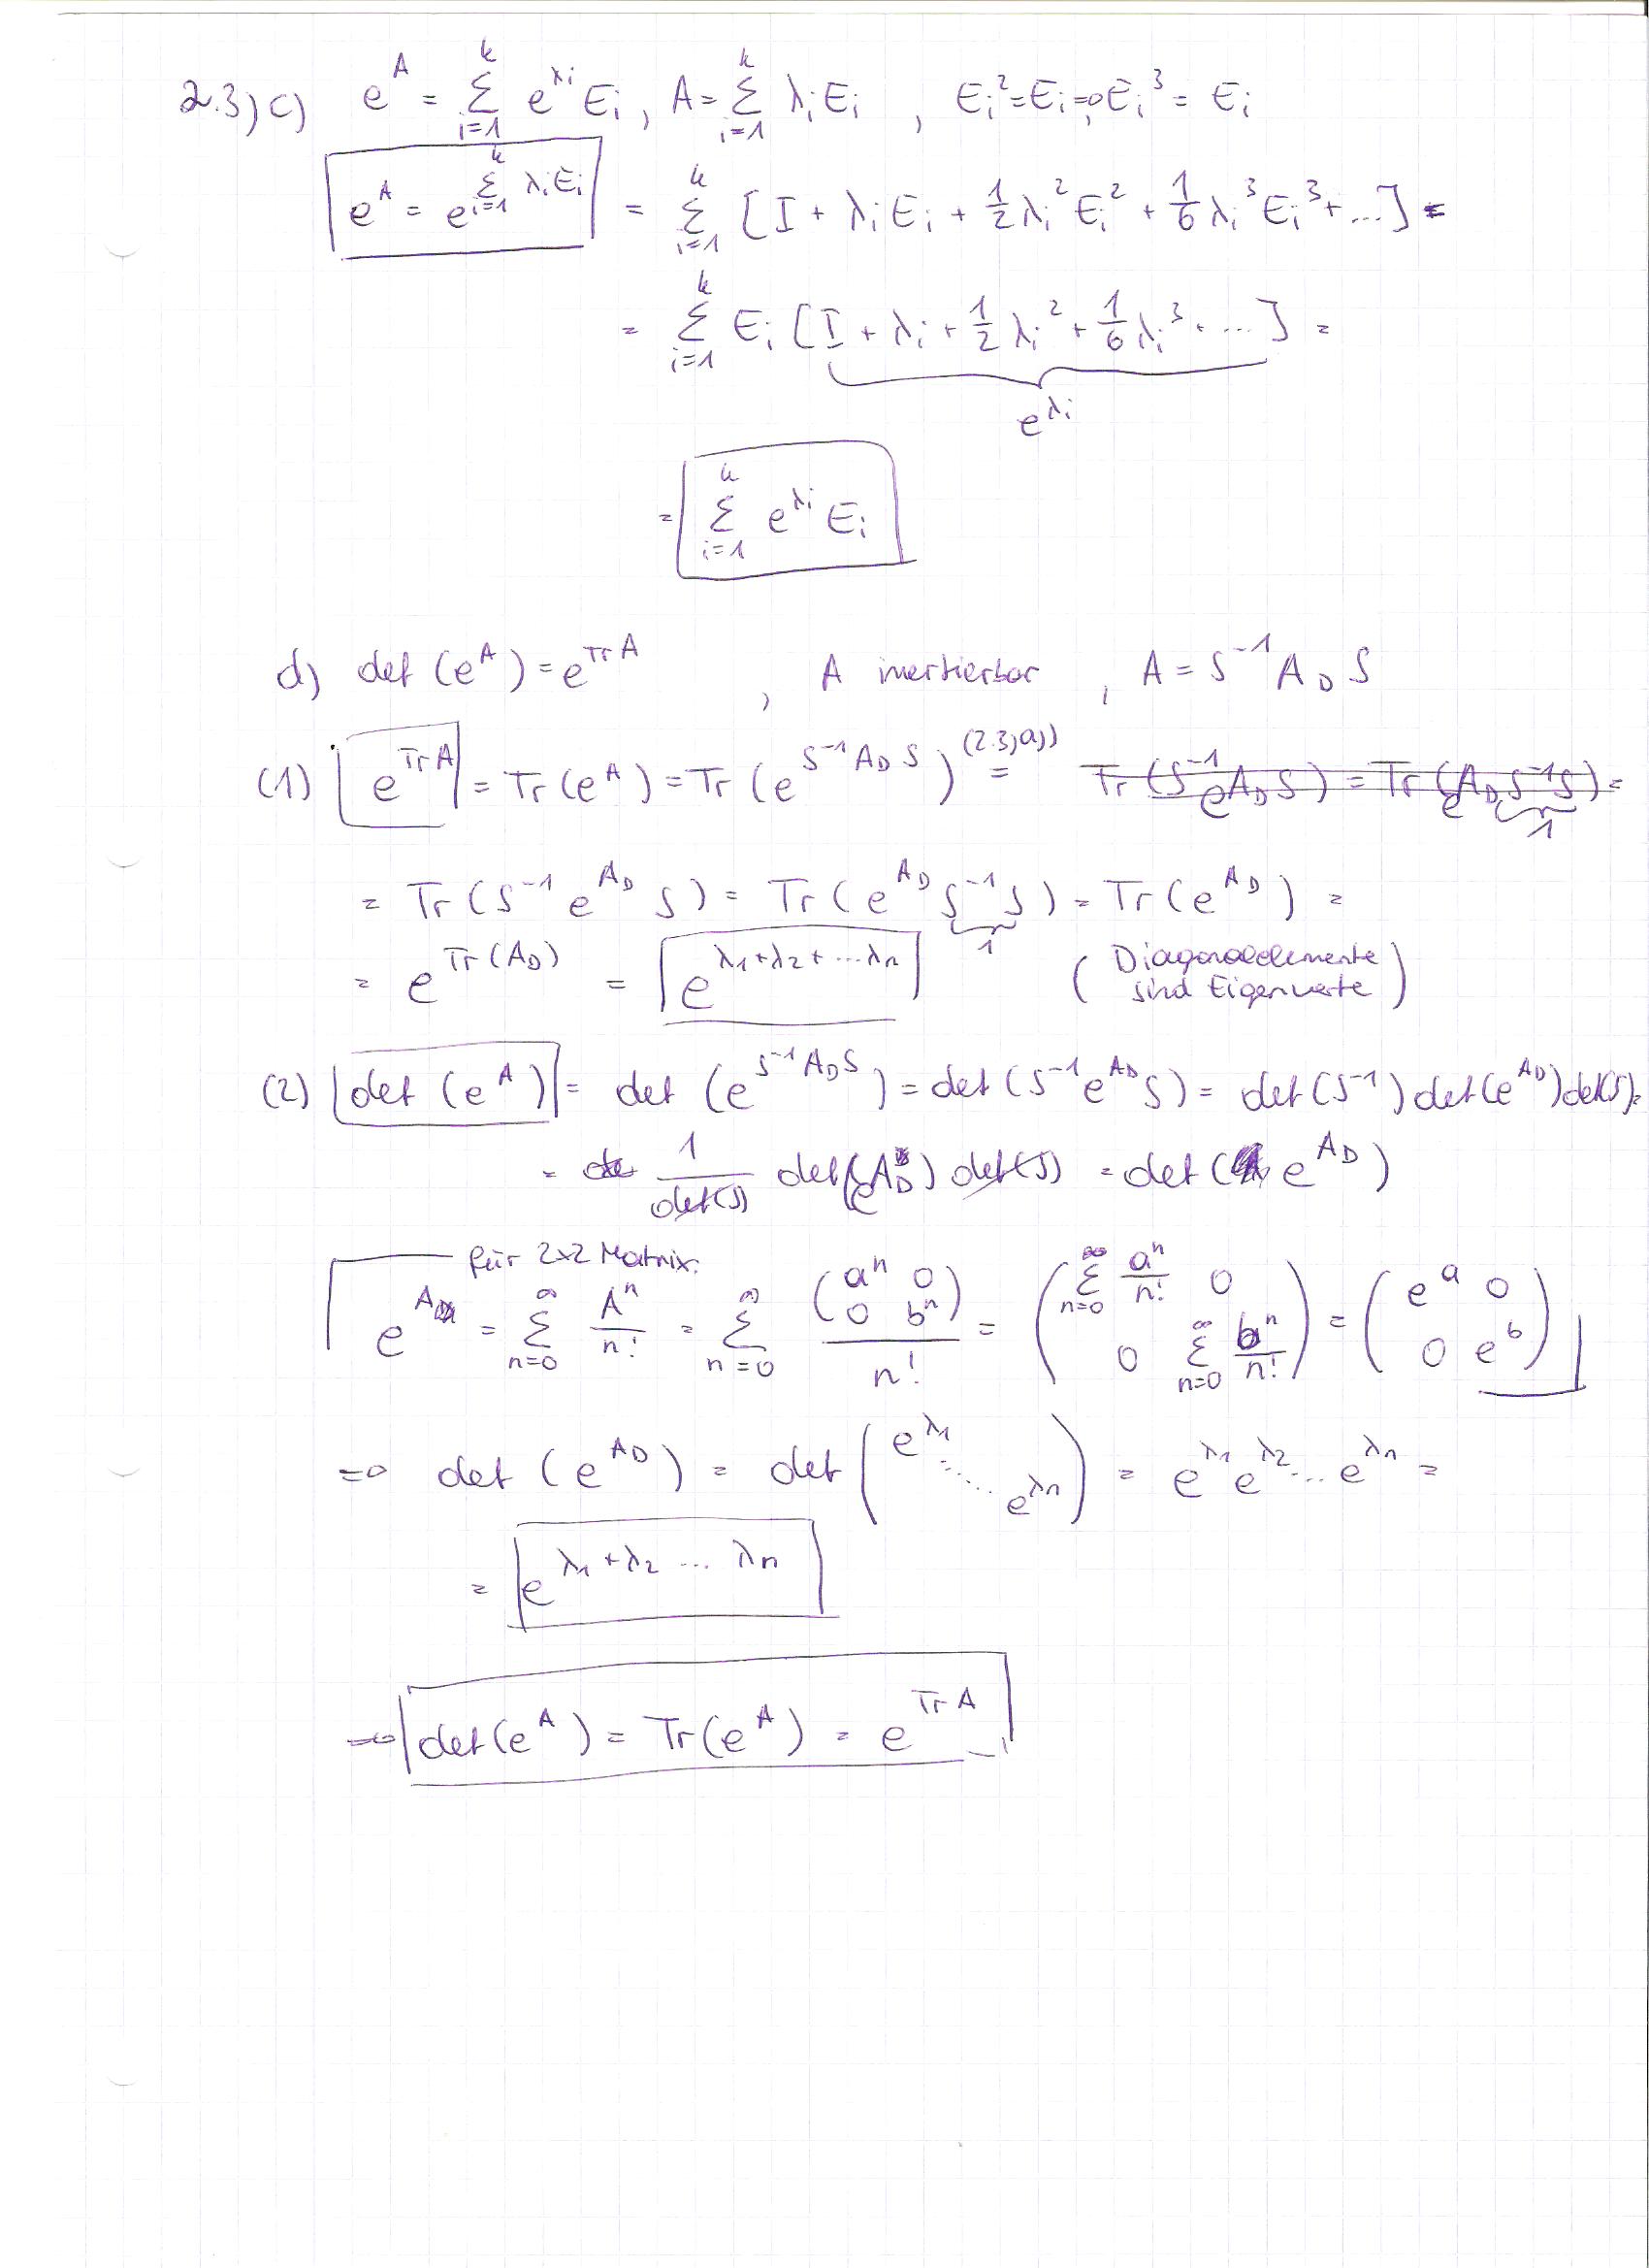 2.3) c) e^A = Σ_{i=1}^k e^{λ_i} E_i , A = Σ_{i=1}^k λ_i E_i , E_i² = E_i ⇒ E_i³ = E_i
e^A = e^{Σ_{i=1}^k λ_i E_i} = Σ_{i=1}^k [I + λ_i E_i + 1/2 λ_i² E_i² + 1/6 λ_i³ E_i³ + ...] =
= Σ_{i=1}^k E_i [I + λ_i + 1/2 λ_i² + 1/6 λ_i³ + ...] =
e^{λ_i}
= Σ_{i=1}^k e^{λ_i} E_i
d) det (e^A) = e^{Tr A} , A invertierbar , A = S^{-1} A_D S
(1) e^{Tr A} = Tr (e^A) = Tr (e^{S^{-1} A_D S}) =^{(2.3)a)} Tr (S^{-1} e^{A_D} S) = Tr (e^{A_D} S^{-1} S) =
1
= Tr (S^{-1} e^{A_D} S) = Tr (e^{A_D} S^{-1} S) = Tr (e^{A_D}) =
1
= e^{Tr (A_D)} = e^{λ_1+λ_2+...λ_n} (Diagonalelemente
sind Eigenwerte)
(2) det (e^A) = det (e^{S^{-1} A_D S}) = det (S^{-1} e^{A_D} S) = det (S^{-1}) det (e^{A_D}) det(S) =
= 1/det(S) det(e^{A_D}) det(S) = det (e^{A_D})
für 2x2 Matrix:
e^A = Σ_{n=0}^∞ A^n/n! = Σ_{n=0}^∞ (a^n 0 0 b^n)/n! = (Σ_{n=0}^∞ a^n/n! 0 0 Σ_{n=0}^∞ b^n/n!) = (e^a 0 0 e^b)
⇒ det (e^{A_D}) = det (e^{λ_1} ... e^{λ_n}) = e^{λ_1} e^{λ_2} ... e^{λ_n} =
= e^{λ_1+λ_2 ... λ_n}
⇒ det(e^A) = Tr(e^A) = e^{Tr A}